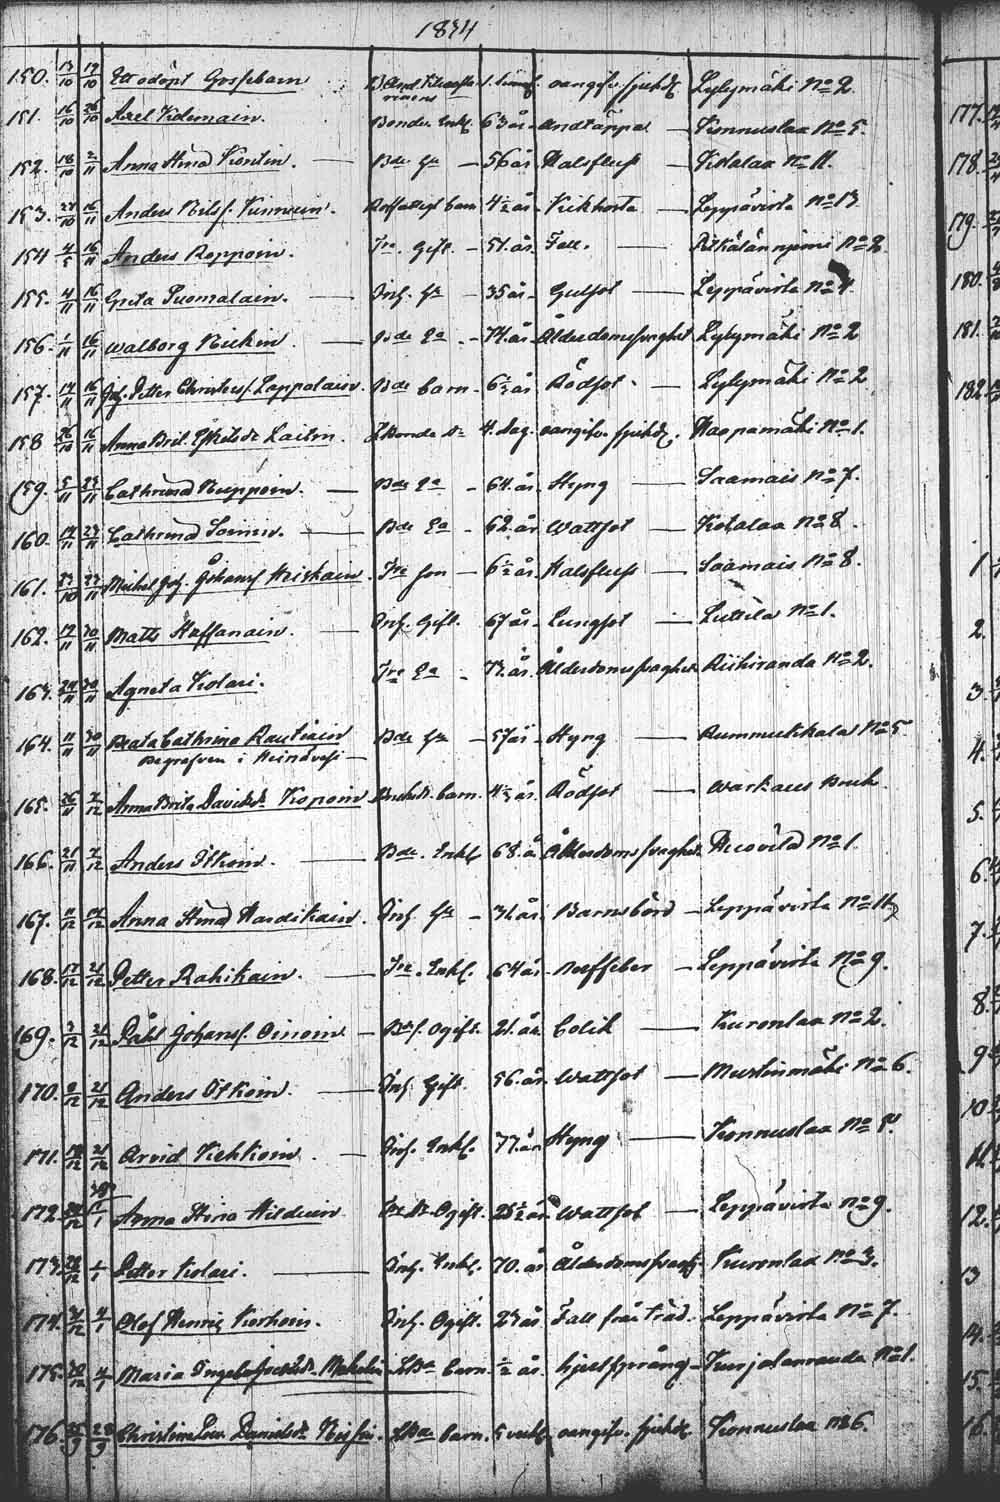 1834
150. 13/10 19/10 Ett odöpt Gossebarn oangifv. sjukd. Lylymäki No 2.
151. 16/10 26/10 Axel Videnain. Bonde Enkl. 63 år Andtäppa Konnuslax No 5.
152. 18/10 2/11 Anna Stina Kontin. Bde Ga 56 år Halsfluss Kotalax No 11.
153. 27/10 16/11 Anders Nilsf. barn 4 1/2 år Kikhosta Leppävirta No 13
154 4/5 16/11 Anders Roppoin. Tre. Gift. 51. år. Fall. No 2
155. 4/11 16/11 Greta Tuomalain. Inh. Ga 35 år Gulsot Leppävirta No 4
156. 1/11 16/11 Walborg Miekin Bde Ea 74. år Ålderdomssvaghet Lylymäki No 2
157. 14/11 16/11 Joh. Petter Christersf. Lappalain. Bde barn 6 1/2 år Rödsot Lylymäki No 2
158 26/10 16/11 Anna Brit. Laitin. Bonde Dr 4. dag. oangifv. sjukd. Haapamäki No 1.
159. 5/11 23/11 Cathrina Ruppoin. Bde Ea 64. år Styng Saamais No 7.
160. 14/11 23/11 Cathrina Soinin. Bde Ea 62. år Wattsot Kotalax No 8.
161. 23/10 23/11 Michel Joh. Johansf. Miskain. Tre son 6 1/2 år Halsfluss Saamais No 8.
162. 19/11 30/11 Matts Haffanain. Inh. Gift. 67 år Lungsot Luttila No 1.
163. 24/11 30/11 Agneta Kolari. Tre Ea 73. år. Ålderdomssvaghet Riihiranda No 2.
164. 11/11 30/11 Beata Cathrina Rautiain Bde Ga 57 år Styng Rummukkala No 5
Begrafven i Heinävesi
165. 26/11 7/12 Anna Brita Davidsdr Kopoin barn. 4 1/2 år. Rödsot Warkaus Bruk
166. 21/11 7/12 Anders Itkoin. Bde. Enkl. 68. år Ålderdomssvaghet No 1
167. 11/12 14/12 Anna Stina Hardikain. Inh. Ga 31 år. Barnsbörd Leppävirta No 11
168. 17/12 21/12 Petter Rahikain. Tre. Enkl. 64 år Leppävirta No 9.
169. 3/12 21/12 Påhl Johansf. Oinoin Bdf. Ogift. 21. år Colik Kurenlax No 2.
170. 9/12 21/12 Anders Itkoin. Inh. Gift. 56. år Wattsot Mustinmäki No 6.
171. 18/12 21/12 Arvid Kiehkoin. Inh. Enkl. 77. år Styng Konnuslax No 5.
172. 24/12 1/1 Anna Stina Hilduin Tre Dr Ogift. 25 1/2 år Wattsot Leppävirta No 9.
173. 28/12 1/1 Petter Kolari. Inh. Enkl. 70. år Ålderdomssvagh Kurenlax No 3.
174. 31/12 4/1 Olof Henric Korhoin. Inh. Ogift. 23 år. Fall från träd. Leppävirta No 7.
175. 30/12 4/1 Maria Ingeborg barn. 1/2 år. hjertsprång Kurjalanranda No 1.
176. 25/9 28/9 Christina Lov. Danielsdr barn. 5 veck. oangifv. sjukd. Konnuslax No 6.
177.
178.
179.
180.
181.
182
1
2.
3.
4.
5.
6.
7.
8.
9
10
11.
12.
13
14.
15.
16.